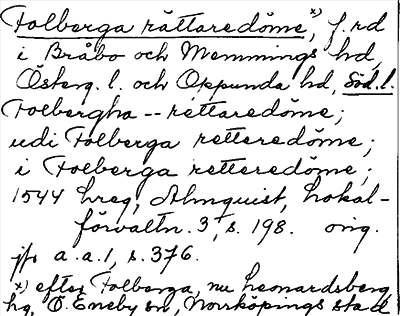 Folberga rättaredöme, x) f. rd
i Bråbo och Memmings hd,
Österg. l. och Oppunda hd, Söd. l.
Folbergha -- rettaredöme;
udi Folberga retteredöme;
i Folberga retteredöme;
1544 hreg, Almquist, Lokal-
förvaltn. 3, s. 198. orig.
jfr a. a. 1, s. 376.
x) efter Folberga, nu Leonardsberg
hg, Ö. Eneby sn, Norrköpings stad